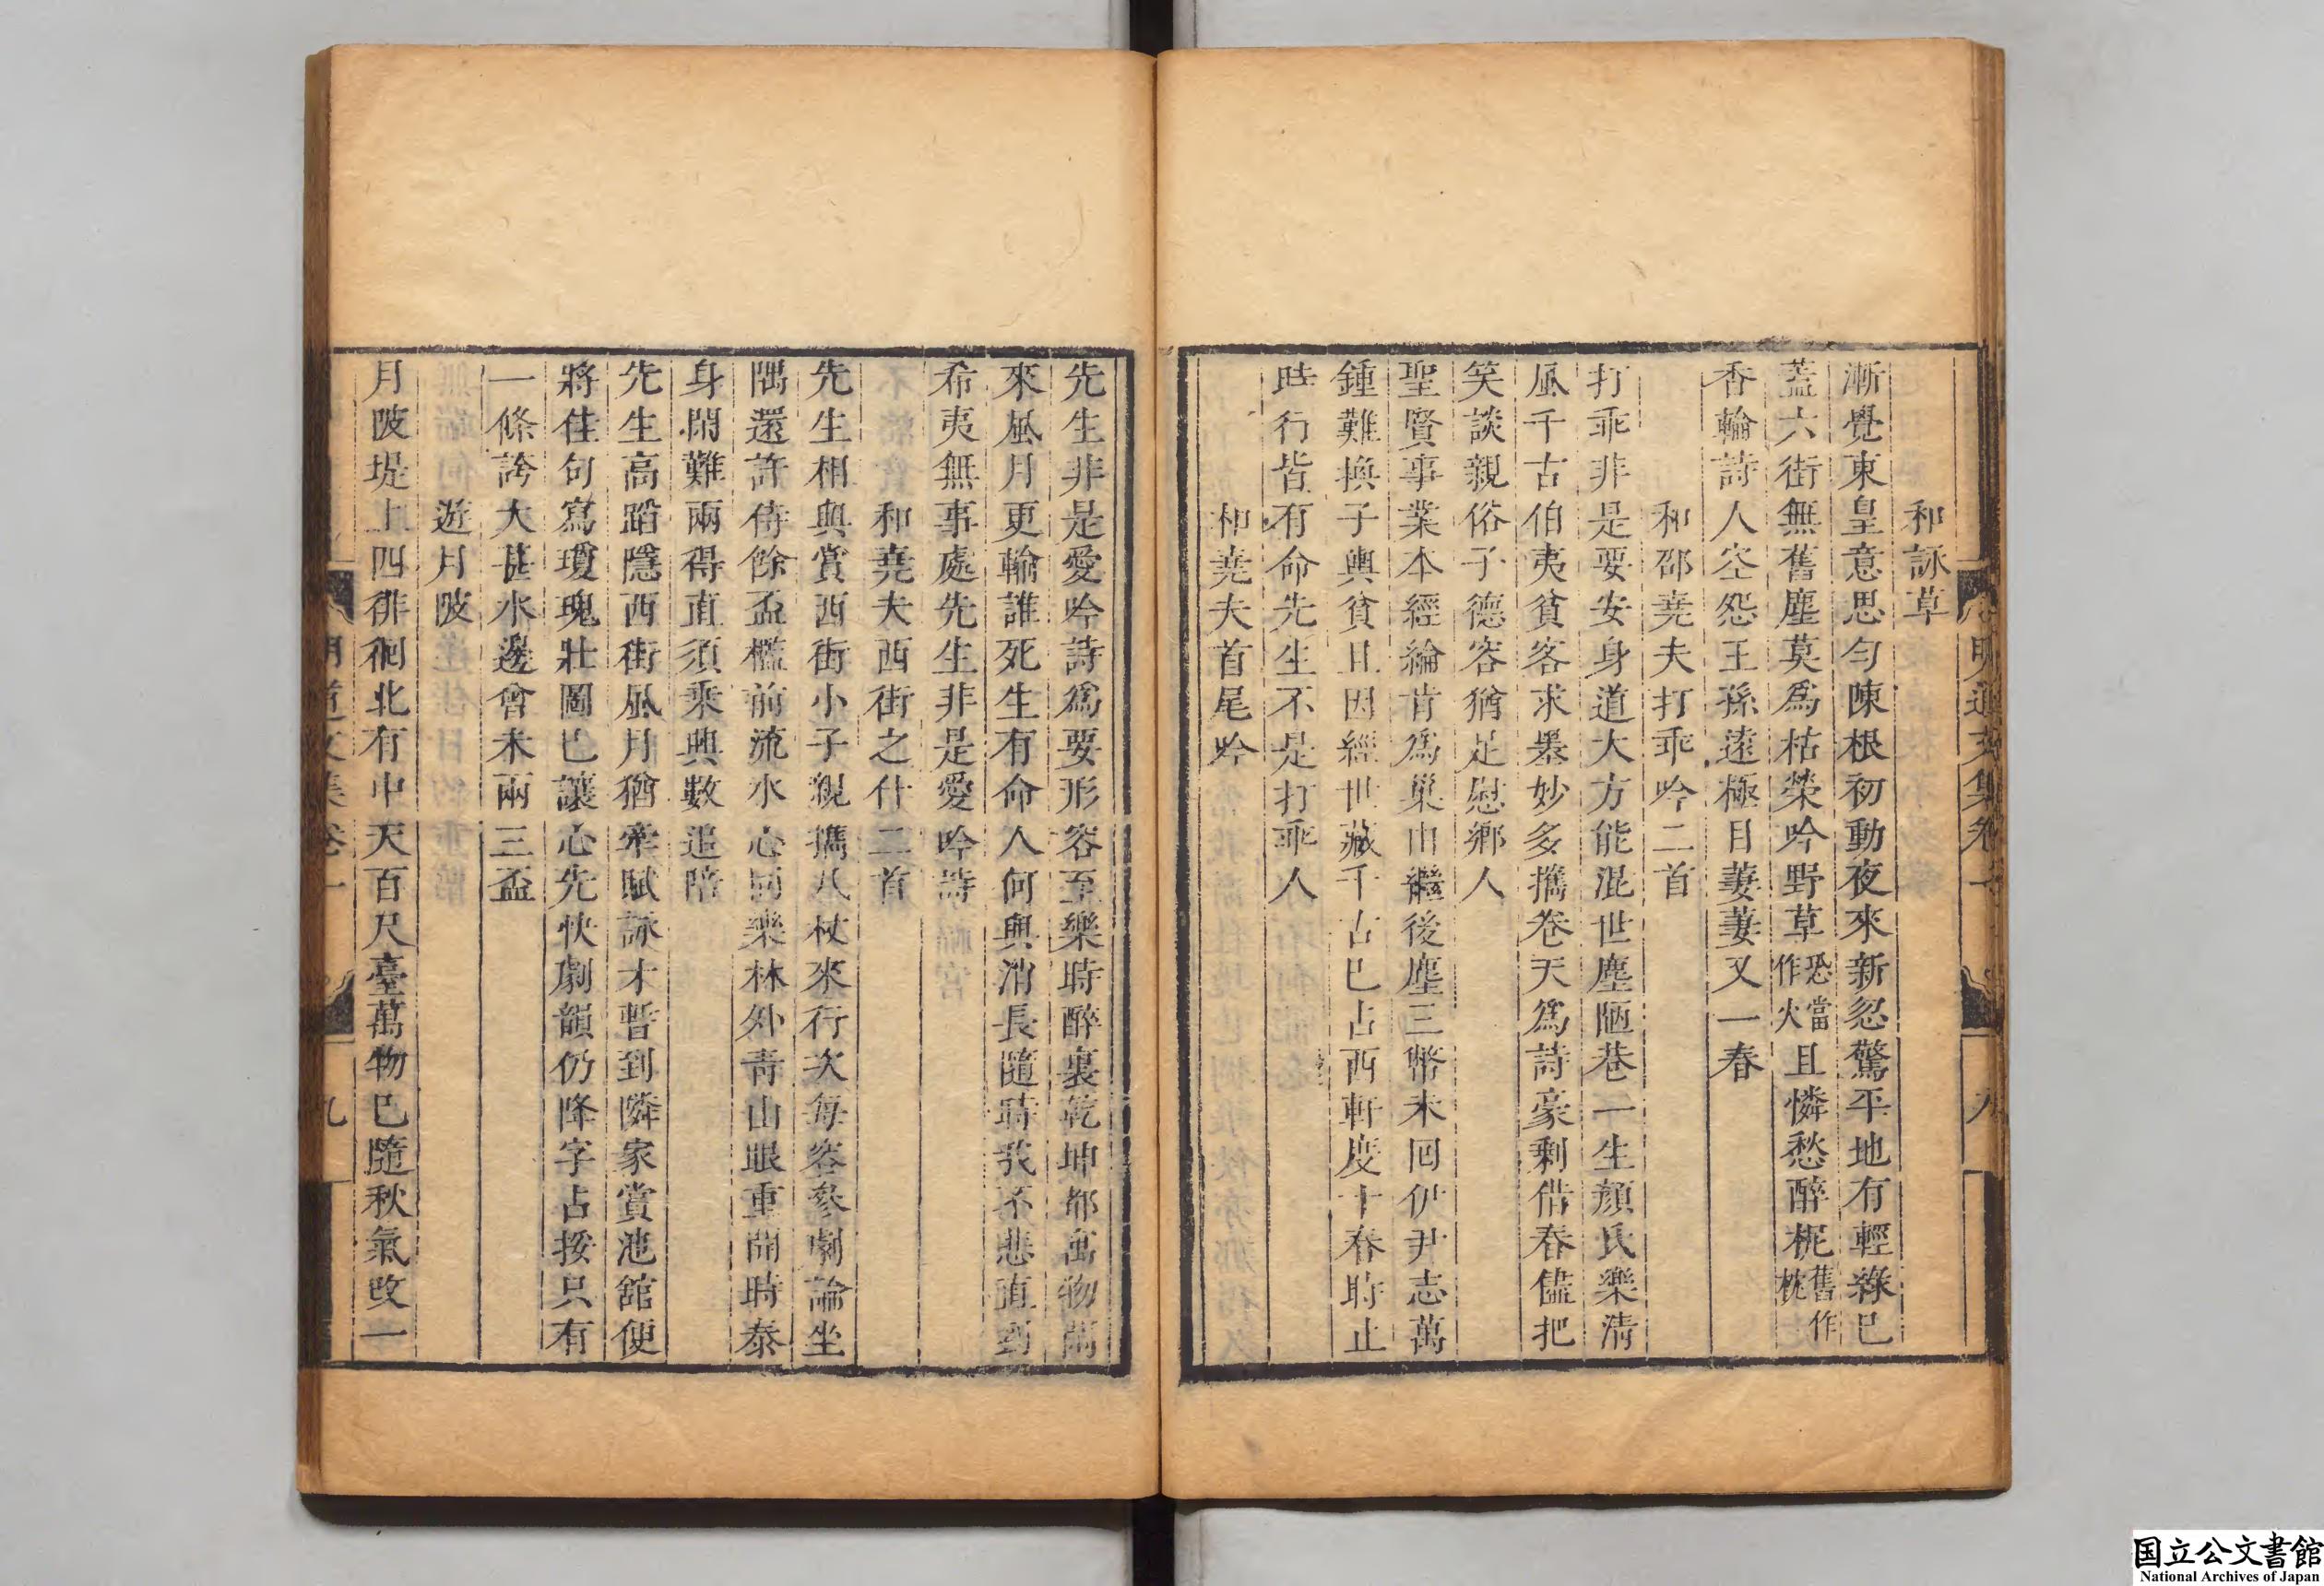 和詠草
漸覺東皇意思勻陳根初動夜來新忽驚平地有輕綠已
蓋六街無舊塵莫爲枯榮吟野草恐當作火且憐愁醉柅舊作枕
香輪詩人空怨王孫遠極目萋萋又一春
和邵堯夫打乖吟二首
打乖非是要安身道大方能混世塵陋巷一生顏氏樂淸
風千古伯夷貧客求墨妙多攜卷天爲詩豪剩借春儘把
笑談親俗子德容猶足慰鄉人
聖賢事業本經綸肯爲巢由繼後塵三幣未回伊尹志萬
鍾難換子輿貧且因經世藏千古已占西軒度十春時止
時行皆有命先生不是打乖人
和堯夫首尾吟
先生非是愛吟詩爲要形容至樂時醉裏乾坤都寓物閒
來風月更輸誰死生有命人何與消長隨時我不悲直到
希夷無事處先生非是愛吟詩
和堯夫西街之什二首
先生相與賞西街小子親攜几杖來行次每容參劇論坐
隅還許侍餘盃檻前流水心同樂林外靑山眼重開時泰
身閒難兩得直須乘興數追陪
先生高蹈隱西街風月猶牽賦詠才暫到隣家賞池館便
將佳句寫瓊瑰壯圖已讓心先快劇韻仍降字占挼只有
一條誇大甚水邊會未兩三盃
遊月陂
月陂堤上四徘徊北有中天百尺臺萬物已隨秋氣改一
明道文集卷一
九
国立公文書館
National Archives of Japan